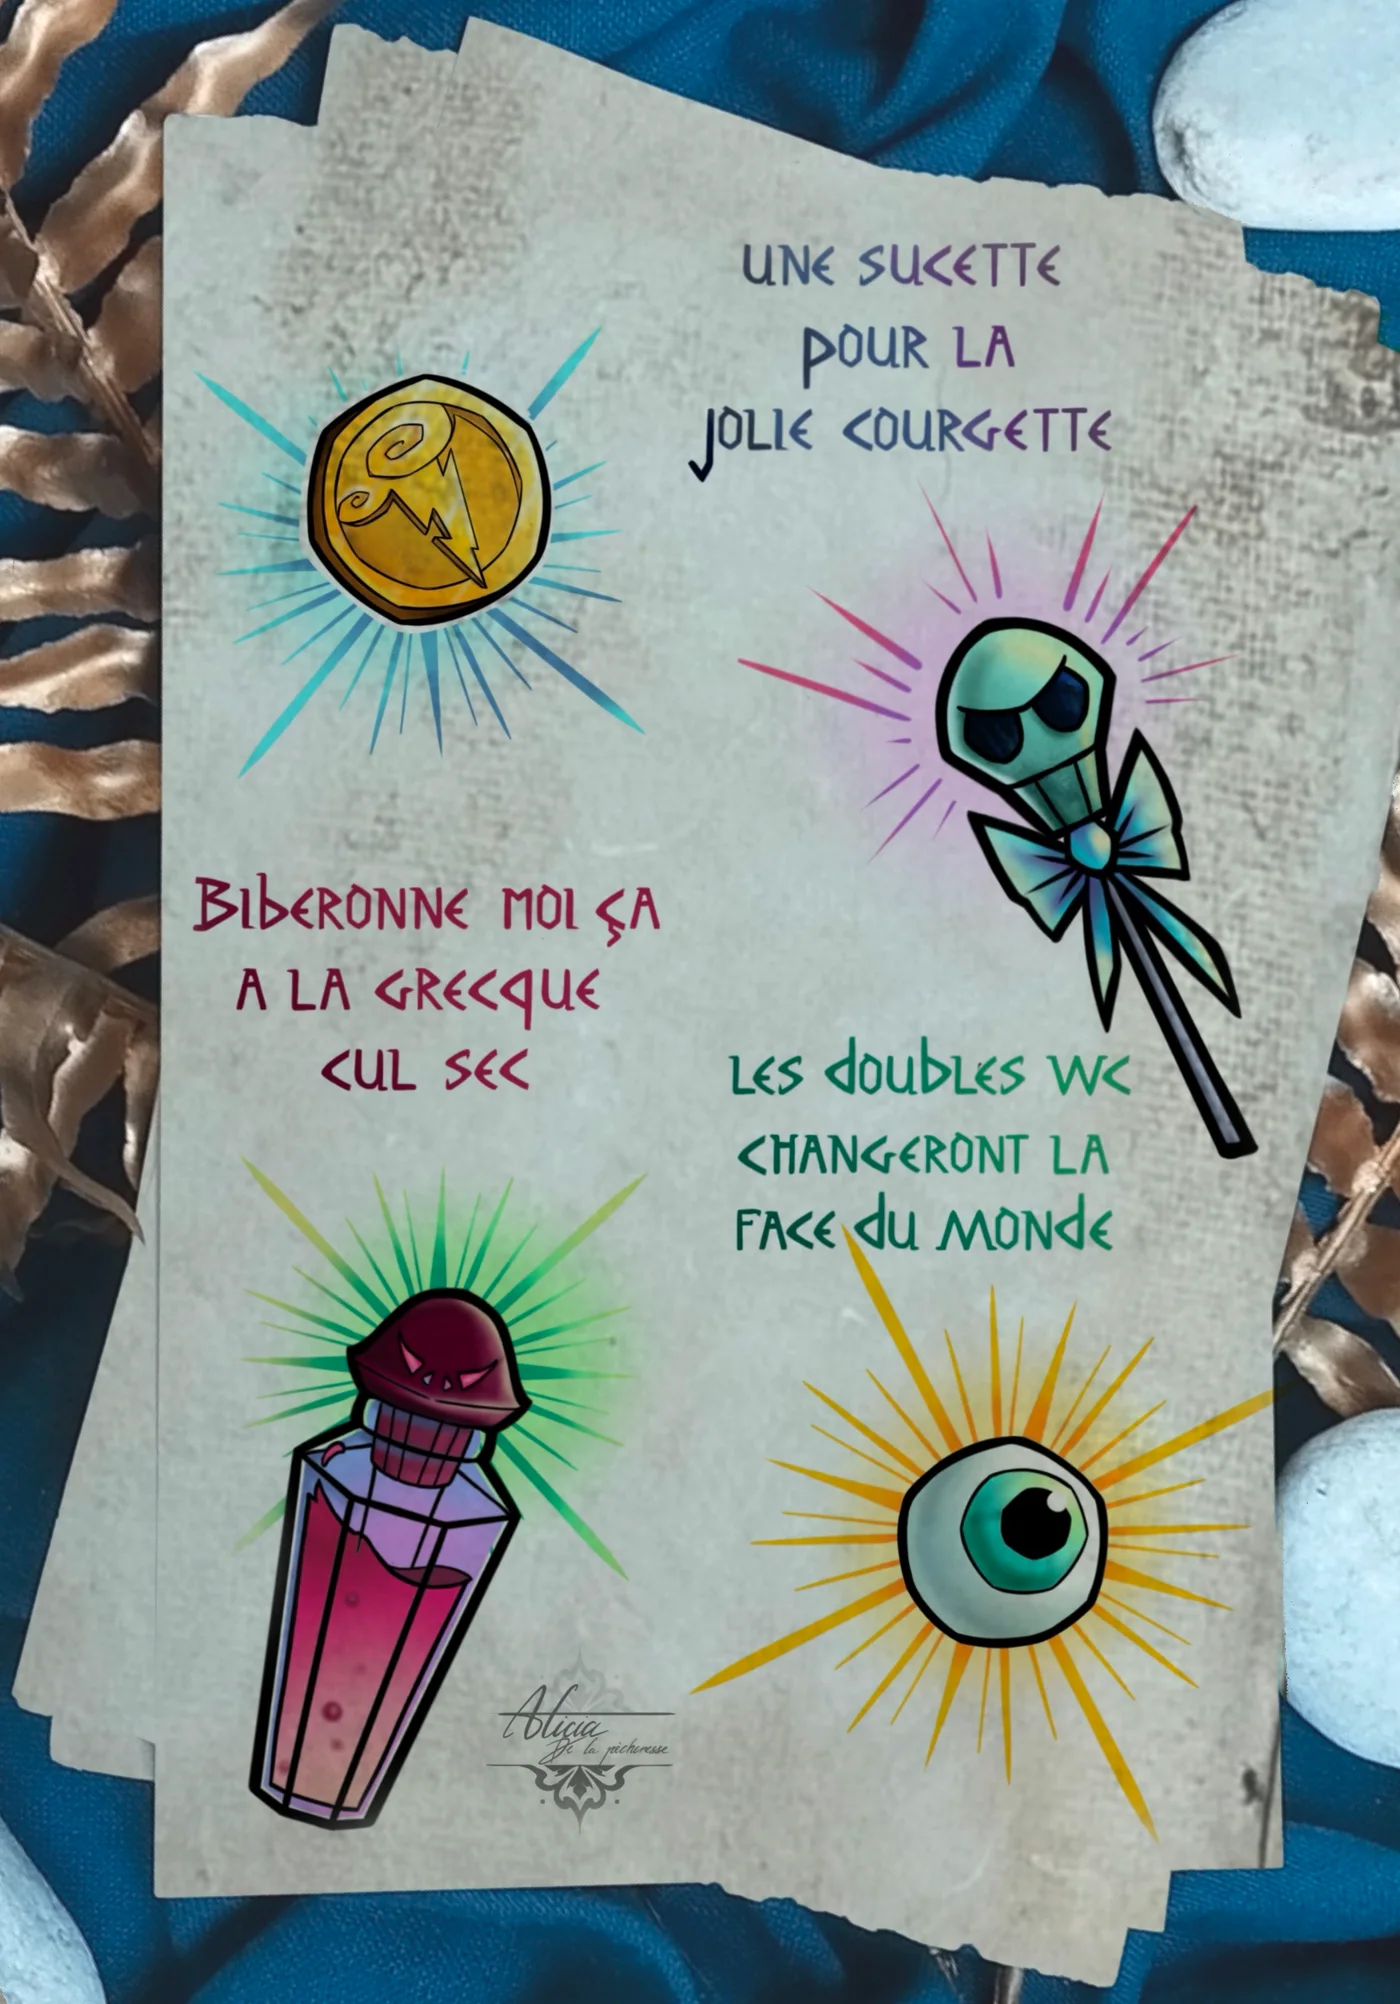 UNE SUCETTE
POUR LA
JOLIE COURGETTE
BIBERONNE MOI ÇA
A LA GRECQUE
CUL SEC
LES DOUBLES WC
CHANGERONT LA
FACE DU MONDE
Alicia
De la pêcheresse